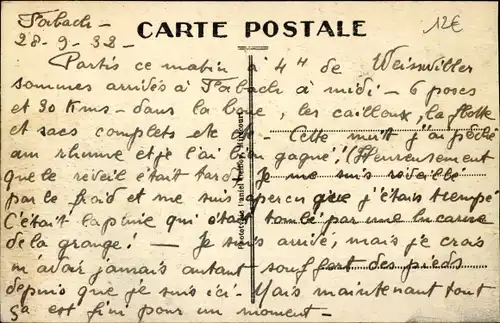 Forbach -
CARTE POSTALE
12€
28-9-32-
Partis ce matin à 4H de Weisswiller
sommes arrivés à Forbach à midi - 6 poses
et 30 Kms - dans la boue, les cailloux, la flotte
et sacs complets etc etc - Cette nuit j'ai pêché
un rhume et je l'ai bien gagné! (Heureusement
que le réveil était tard. Je me suis réveillé
par le froid et me suis aperçu que j'étais trempé
C'était la pluie qui était tombé par une lucarne
de la grange! - Je suis arrivé, mais je crois
n'avoir jamais autant souffert des pieds
depuis que je suis ici. Mais maintenant tout
ça est fini pour un moment -